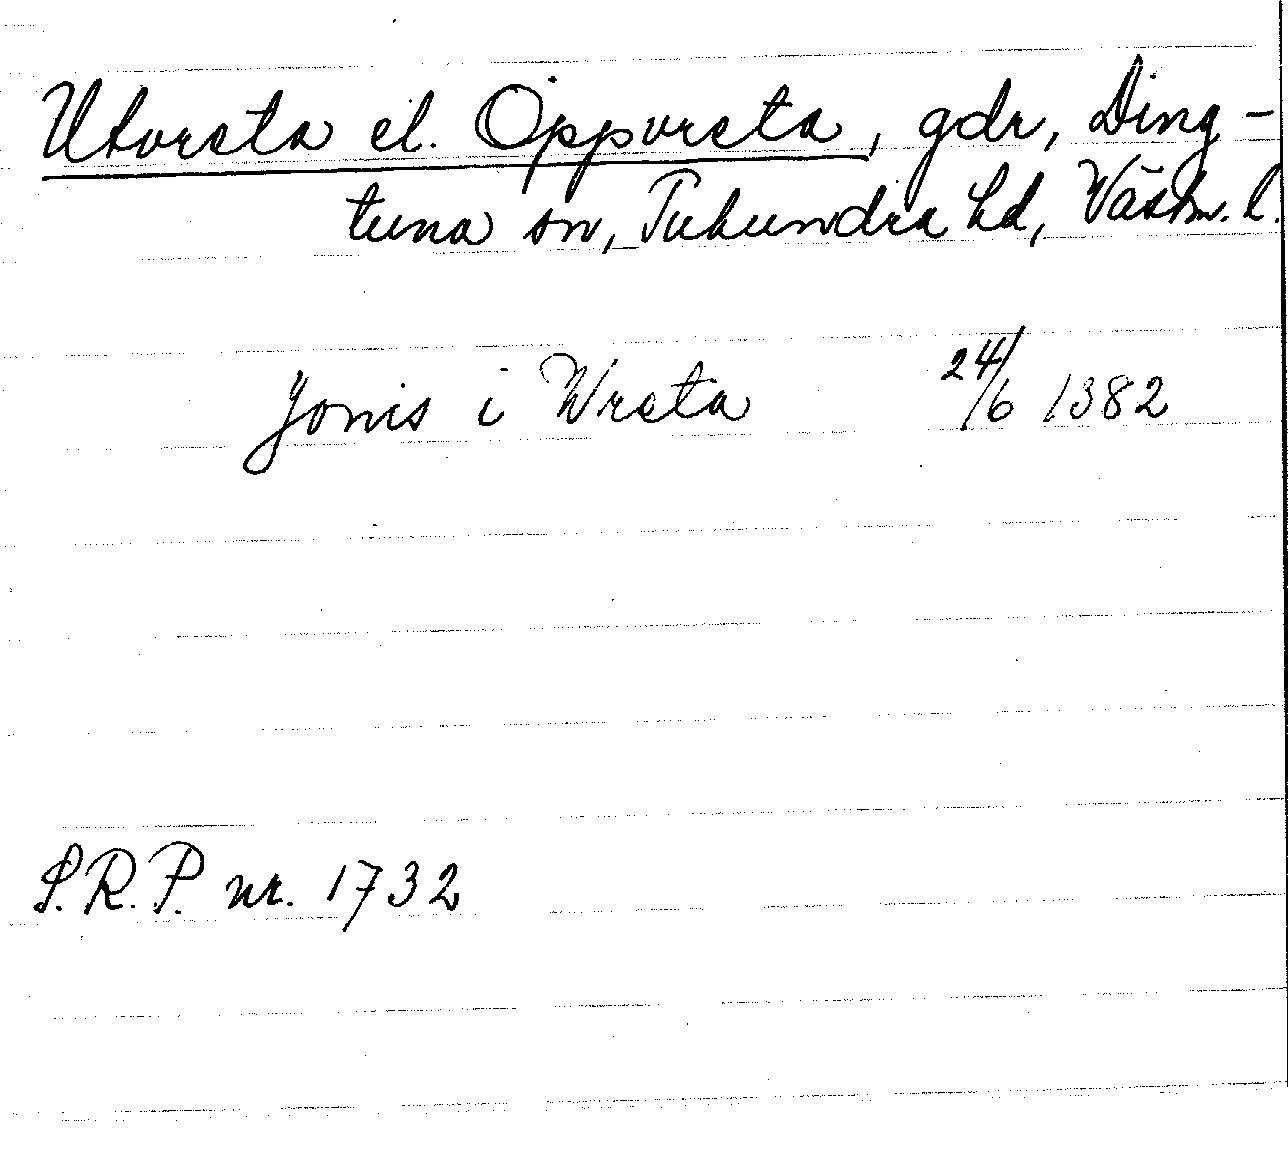 Utvreta el. Öppvreta, gdr, Ding-
tuna sn, Tuhundra hd, Västm. l.
Jonis i Wreta 24/6 1382
S.R.P. nr. 1732